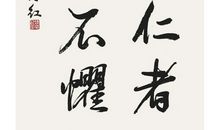 仁者
不懼
红